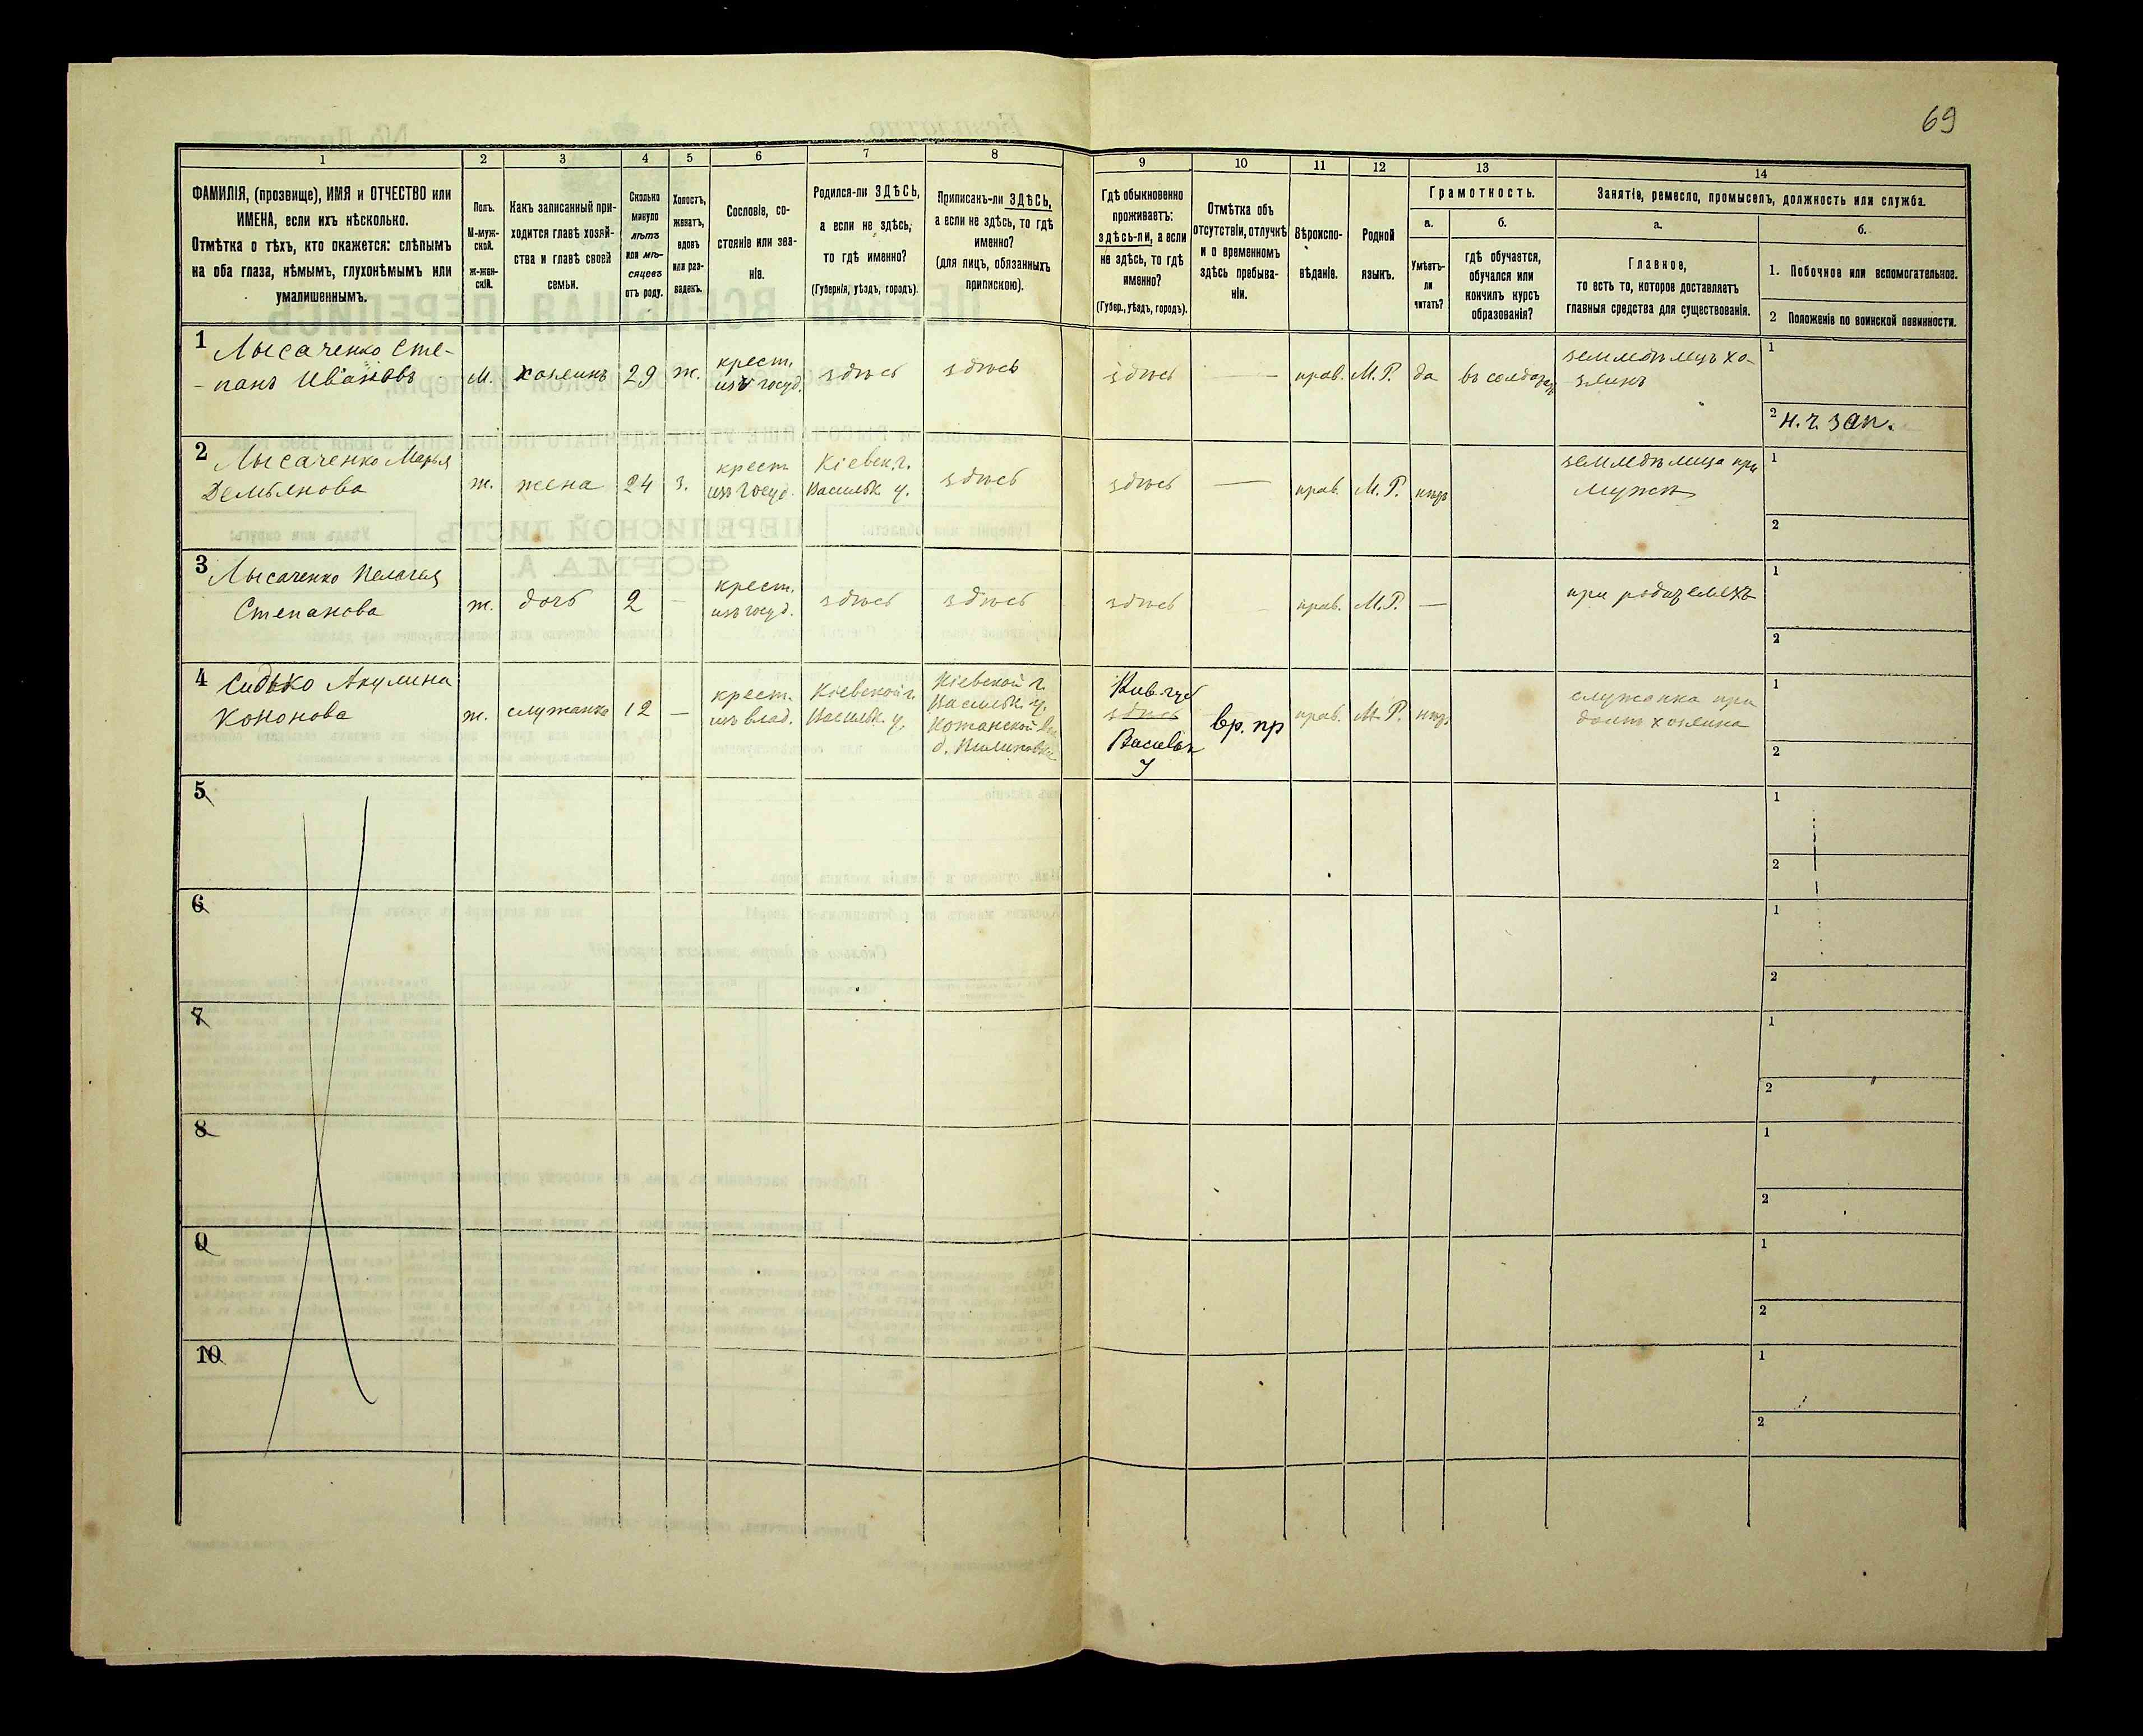 69
1 2 3 4 5 6 7 8 9 10 11 12 13 14
ФАМИЛІЯ, (прозвище), ИМЯ и ОТЧЕСТВО или
ИМЕНА, если ихъ нѣсколько.
Отмѣтка о тѣхъ, кто окажется: слѣпымъ
на оба глаза, нѣмымъ, глухонѣмымъ или
умалишеннымъ.
Полъ.
М-муж-
ской.
ж-жен-
скій.
Какъ записанный при-
ходится главѣ хозяй-
ства и главѣ своей
семьи.
Сколько
минуло
лѣтъ
или мѣ-
сяцевъ
отъ роду.
Холостъ,
женатъ,
вдовъ
или раз-
веденъ.
Сословіе, со-
стояніе или зва-
ніе.
Родился-ли ЗДѢСЬ,
а если не здѣсь,
то гдѣ именно?
(Губернія, уѣздъ, городъ).
Приписанъ-ли ЗДѢСЬ,
а если не здѣсь, то гдѣ
именно?
(для лицъ, обязанныхъ
припискою).
Гдѣ обыкновенно
проживаетъ:
здѣсь-ли, а если
не здѣсь, то гдѣ
именно?
(Губер., уѣздъ, городъ).
Отмѣтка объ
отсутствіи, отлучкѣ
и о временномъ
здѣсь пребыва-
ніи.
Вѣроиспо-
вѣданіе.
Родной
языкъ.
Грамотность.
а.
Умѣетъ-
ли
читать?
б.
гдѣ обучается,
обучался или
кончилъ курсъ
образованія?
Занятія, ремесло, промыселъ, должность или служба.
а.
Главное,
то есть то, которое доставляетъ
главныя средства для существованія.
б.
1. Побочное или вспомогательное.
2 Положеніе по воинской повинности.
1 Лысаченко Сте-
-панъ Ивановъ
М.
хозяинъ
29
ж.
крест.
изъ госуд.
здѣсь
здѣсь
здѣсь
—
прав.
М.Р.
да
въ солдатахъ
земледѣлецъ хо-
зяинъ
1
2 н. ч. зап.
2 Лысаченко Марья
Демьянова
ж.
жена
24
з.
крест
изъ госуд.
Кіевск. г.
Васильк. у.
здѣсь
здѣсь
—
прав.
М.Р.
нѣтъ
земледѣлица при
мужѣ
1
2
3 Лысаченко Пелагея
Степанова
ж.
дочь
2
—
крест.
изъ госуд.
здѣсь
здѣсь
здѣсь
—
прав.
М.Р.
—
при родителяхъ
1
2
4 Сидько Акулина
Кононова
ж.
служанка
12
—
крест.
изъ влад.
Кіевской г.
Васильк. у.
Кіевской г.
Васильк. у.
Кожанской
Кив. губ
здѣсь
Васильк
У
вр. пр
прав.
М.Р.
нѣтъ
служанка при
домѣ хозяина
1
2
5
1
2
6
1
2
7
1
2
8
1
2
9
1
2
10
1
2